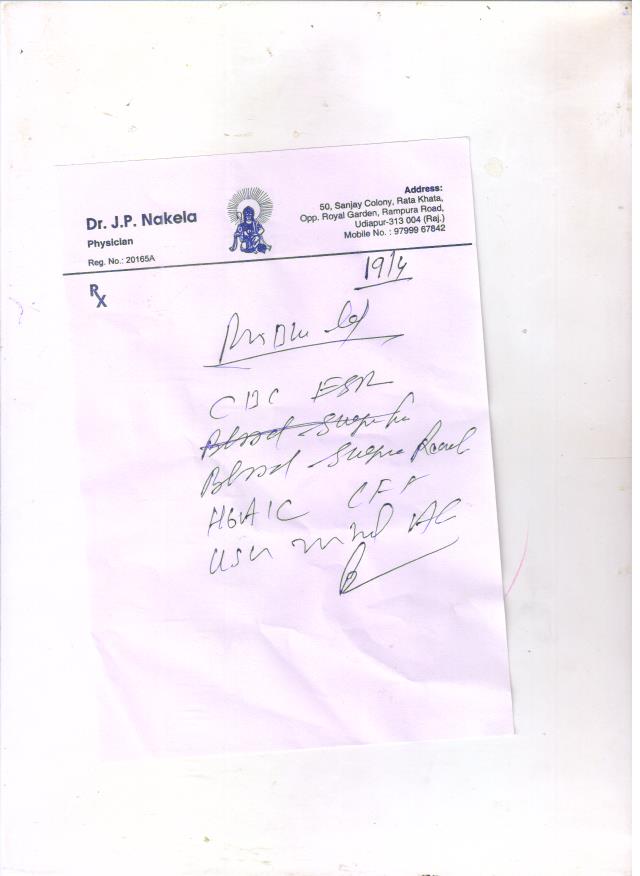 Dr. J.P. Nakela
Physician
Reg. No.: 20165A
Address:
50, Sanjay Colony, Rata Khata,
Opp. Royal Garden, Rampura Road,
Udiapur-313 004 (Raj.)
Mobile No. : 97999 67842
19/4
Rx
CBC ESR
Blood Suga
Blood Sugar
HbA1C